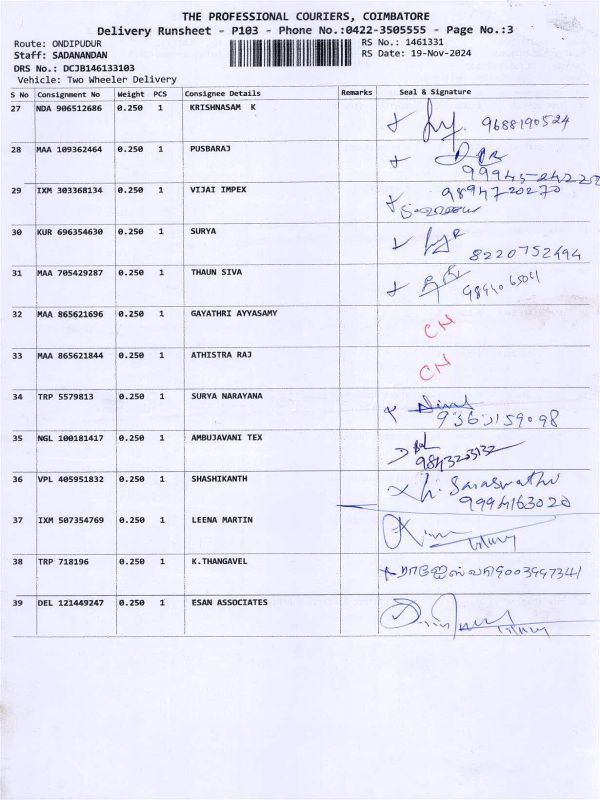 THE PROFESSIONAL COURIERS, COIMBATORE
Delivery Runsheet - P103 - Phone No.:0422-3505555 - Page No.:3
Route: ONDIPUDUR RS No.: 1461331
Staff: SADANANDAN RS Date: 19-Nov-2024
DRS No.: DCJB146133103
Vehicle: Two Wheeler Delivery
S No Consignment No Weight PCS Consignee Details Remarks Seal & Signature
27 NDA 906512686 0.250 1 KRISHNASAM K 9688190524
28 MAA 109362464 0.250 1 PUSBARAJ
29 IXM 303368134 0.250 1 VIJAI IMPEX 9894720270
30 KUR 696354630 0.250 1 SURYA 8220752494
31 MAA 705429287 0.250 1 THAUN SIVA
32 MAA 865621696 0.250 1 GAYATHRI AYYASAMY CN
33 MAA 865621844 0.250 1 ATHISTRA RAJ CN
34 TRP 5579813 0.250 1 SURYA NARAYANA
35 NGL 100181417 0.250 1 AMBUJAVANI TEX
36 VPL 405951832 0.250 1 SHASHIKANTH
9994163020
37 IXM 507354769 0.250 1 LEENA MARTIN
38 TRP 718196 0.250 1 K.THANGAVEL 9003997341
39 DEL 121449247 0.250 1 ESAN ASSOCIATES